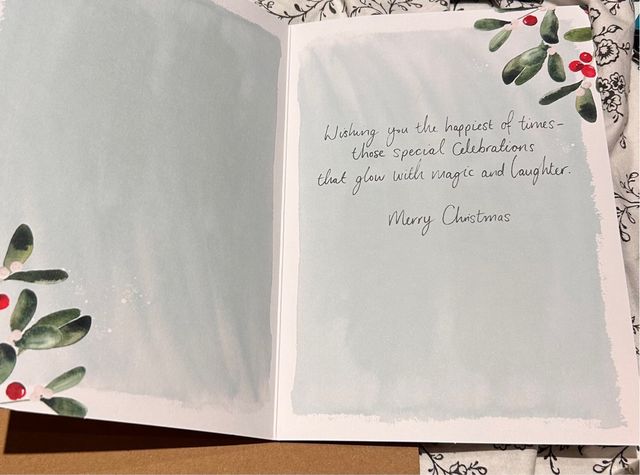 Wishing you the happiest of times–
those special Celebrations
that glow with magic and laughter.
Merry Christmas